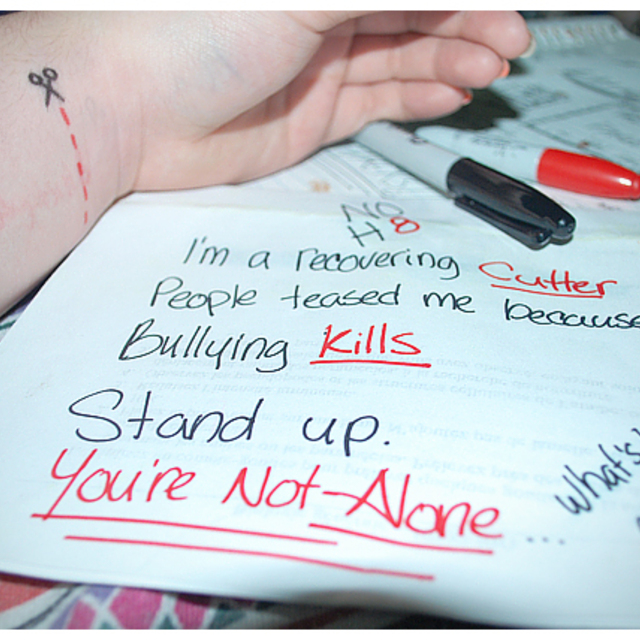 NO
H8
I'm a recovering Cutter
People teased me because
Bullying Kills
Stand up.
You're Not-Alone ...
what's